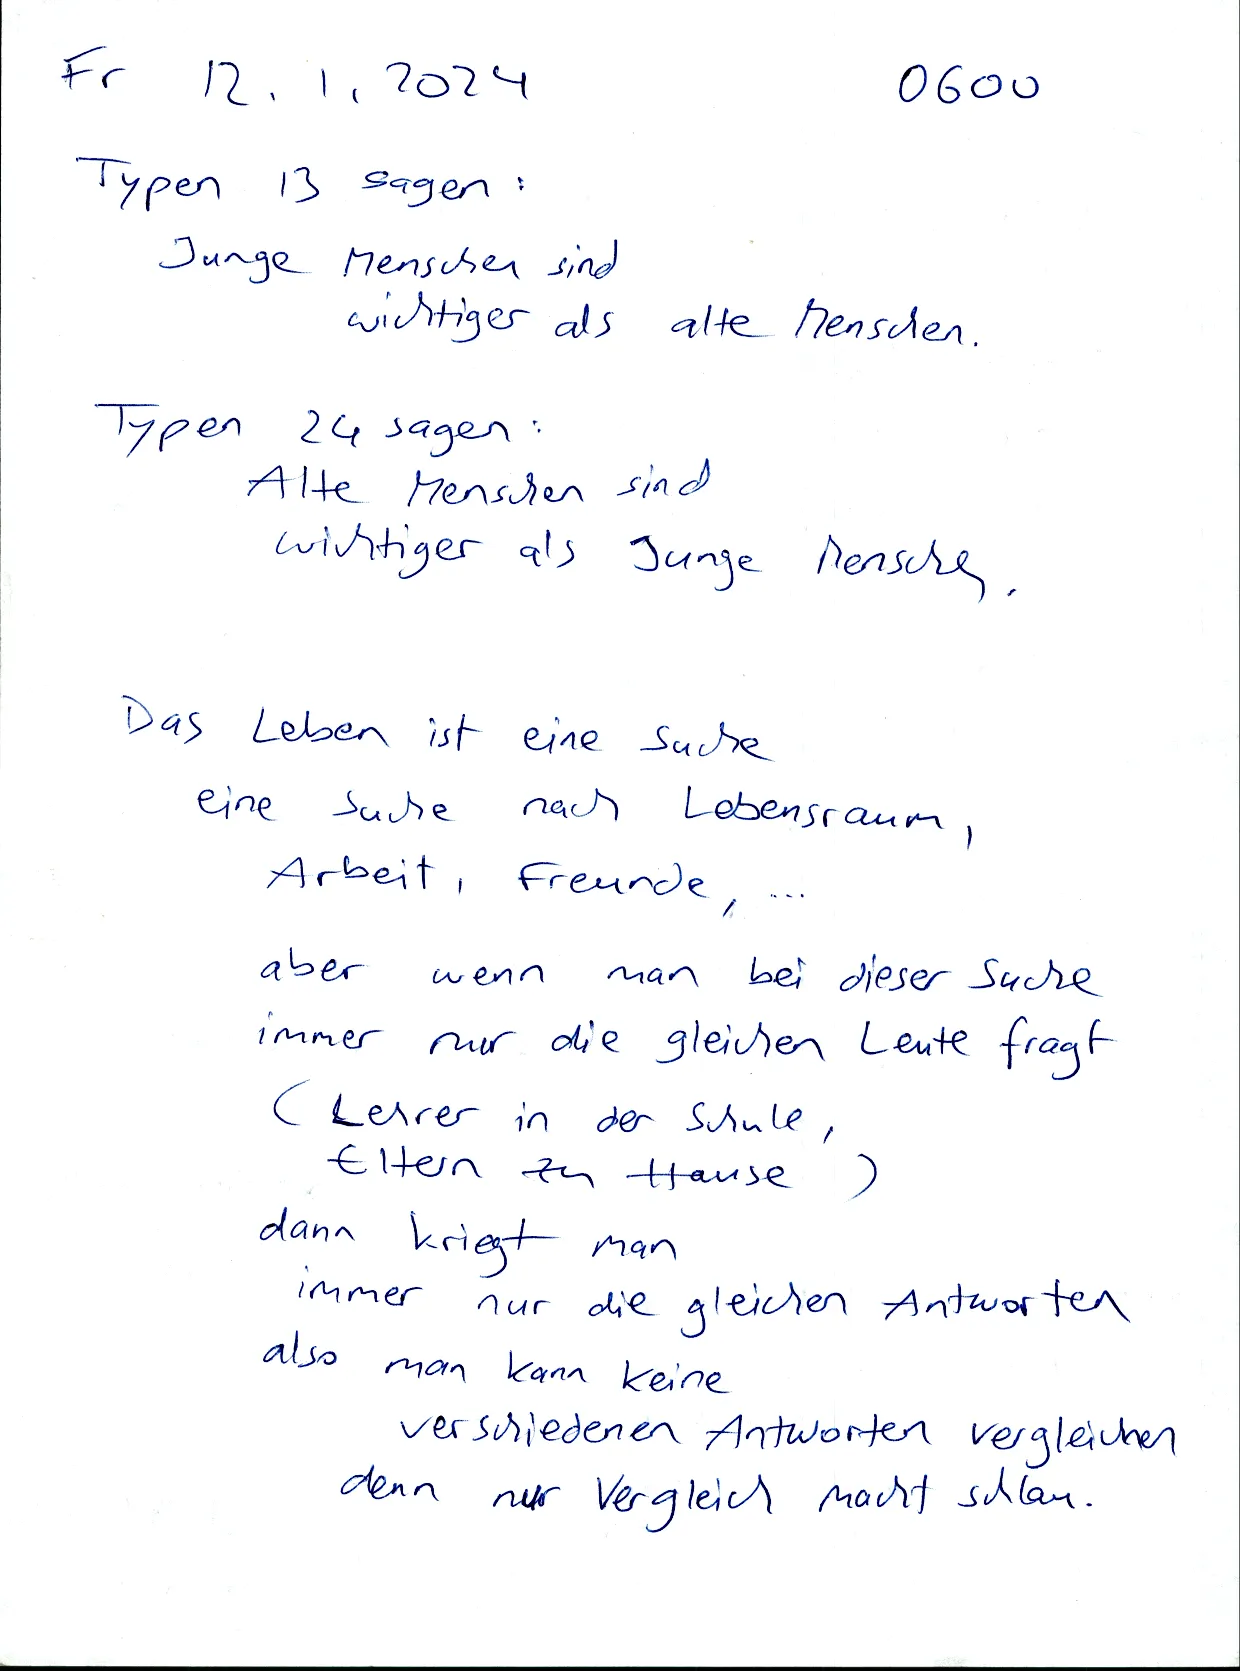 Fr 12.1.2024 0600
Typen 13 sagen:
Junge Menschen sind
wichtiger als alte Menschen.
Typen 24 sagen:
Alte Menschen sind
wichtiger als Junge Menschen.
Das Leben ist eine Suche
eine Suche nach Lebensraum,
Arbeit, Freunde, ...
aber wenn man bei dieser Suche
immer nur die gleichen Leute fragt
(Lehrer in der Schule,
Eltern zu Hause)
dann kriegt man
immer nur die gleichen Antworten
also man kann keine
verschiedenen Antworten vergleichen
denn nur Vergleich macht schlau.